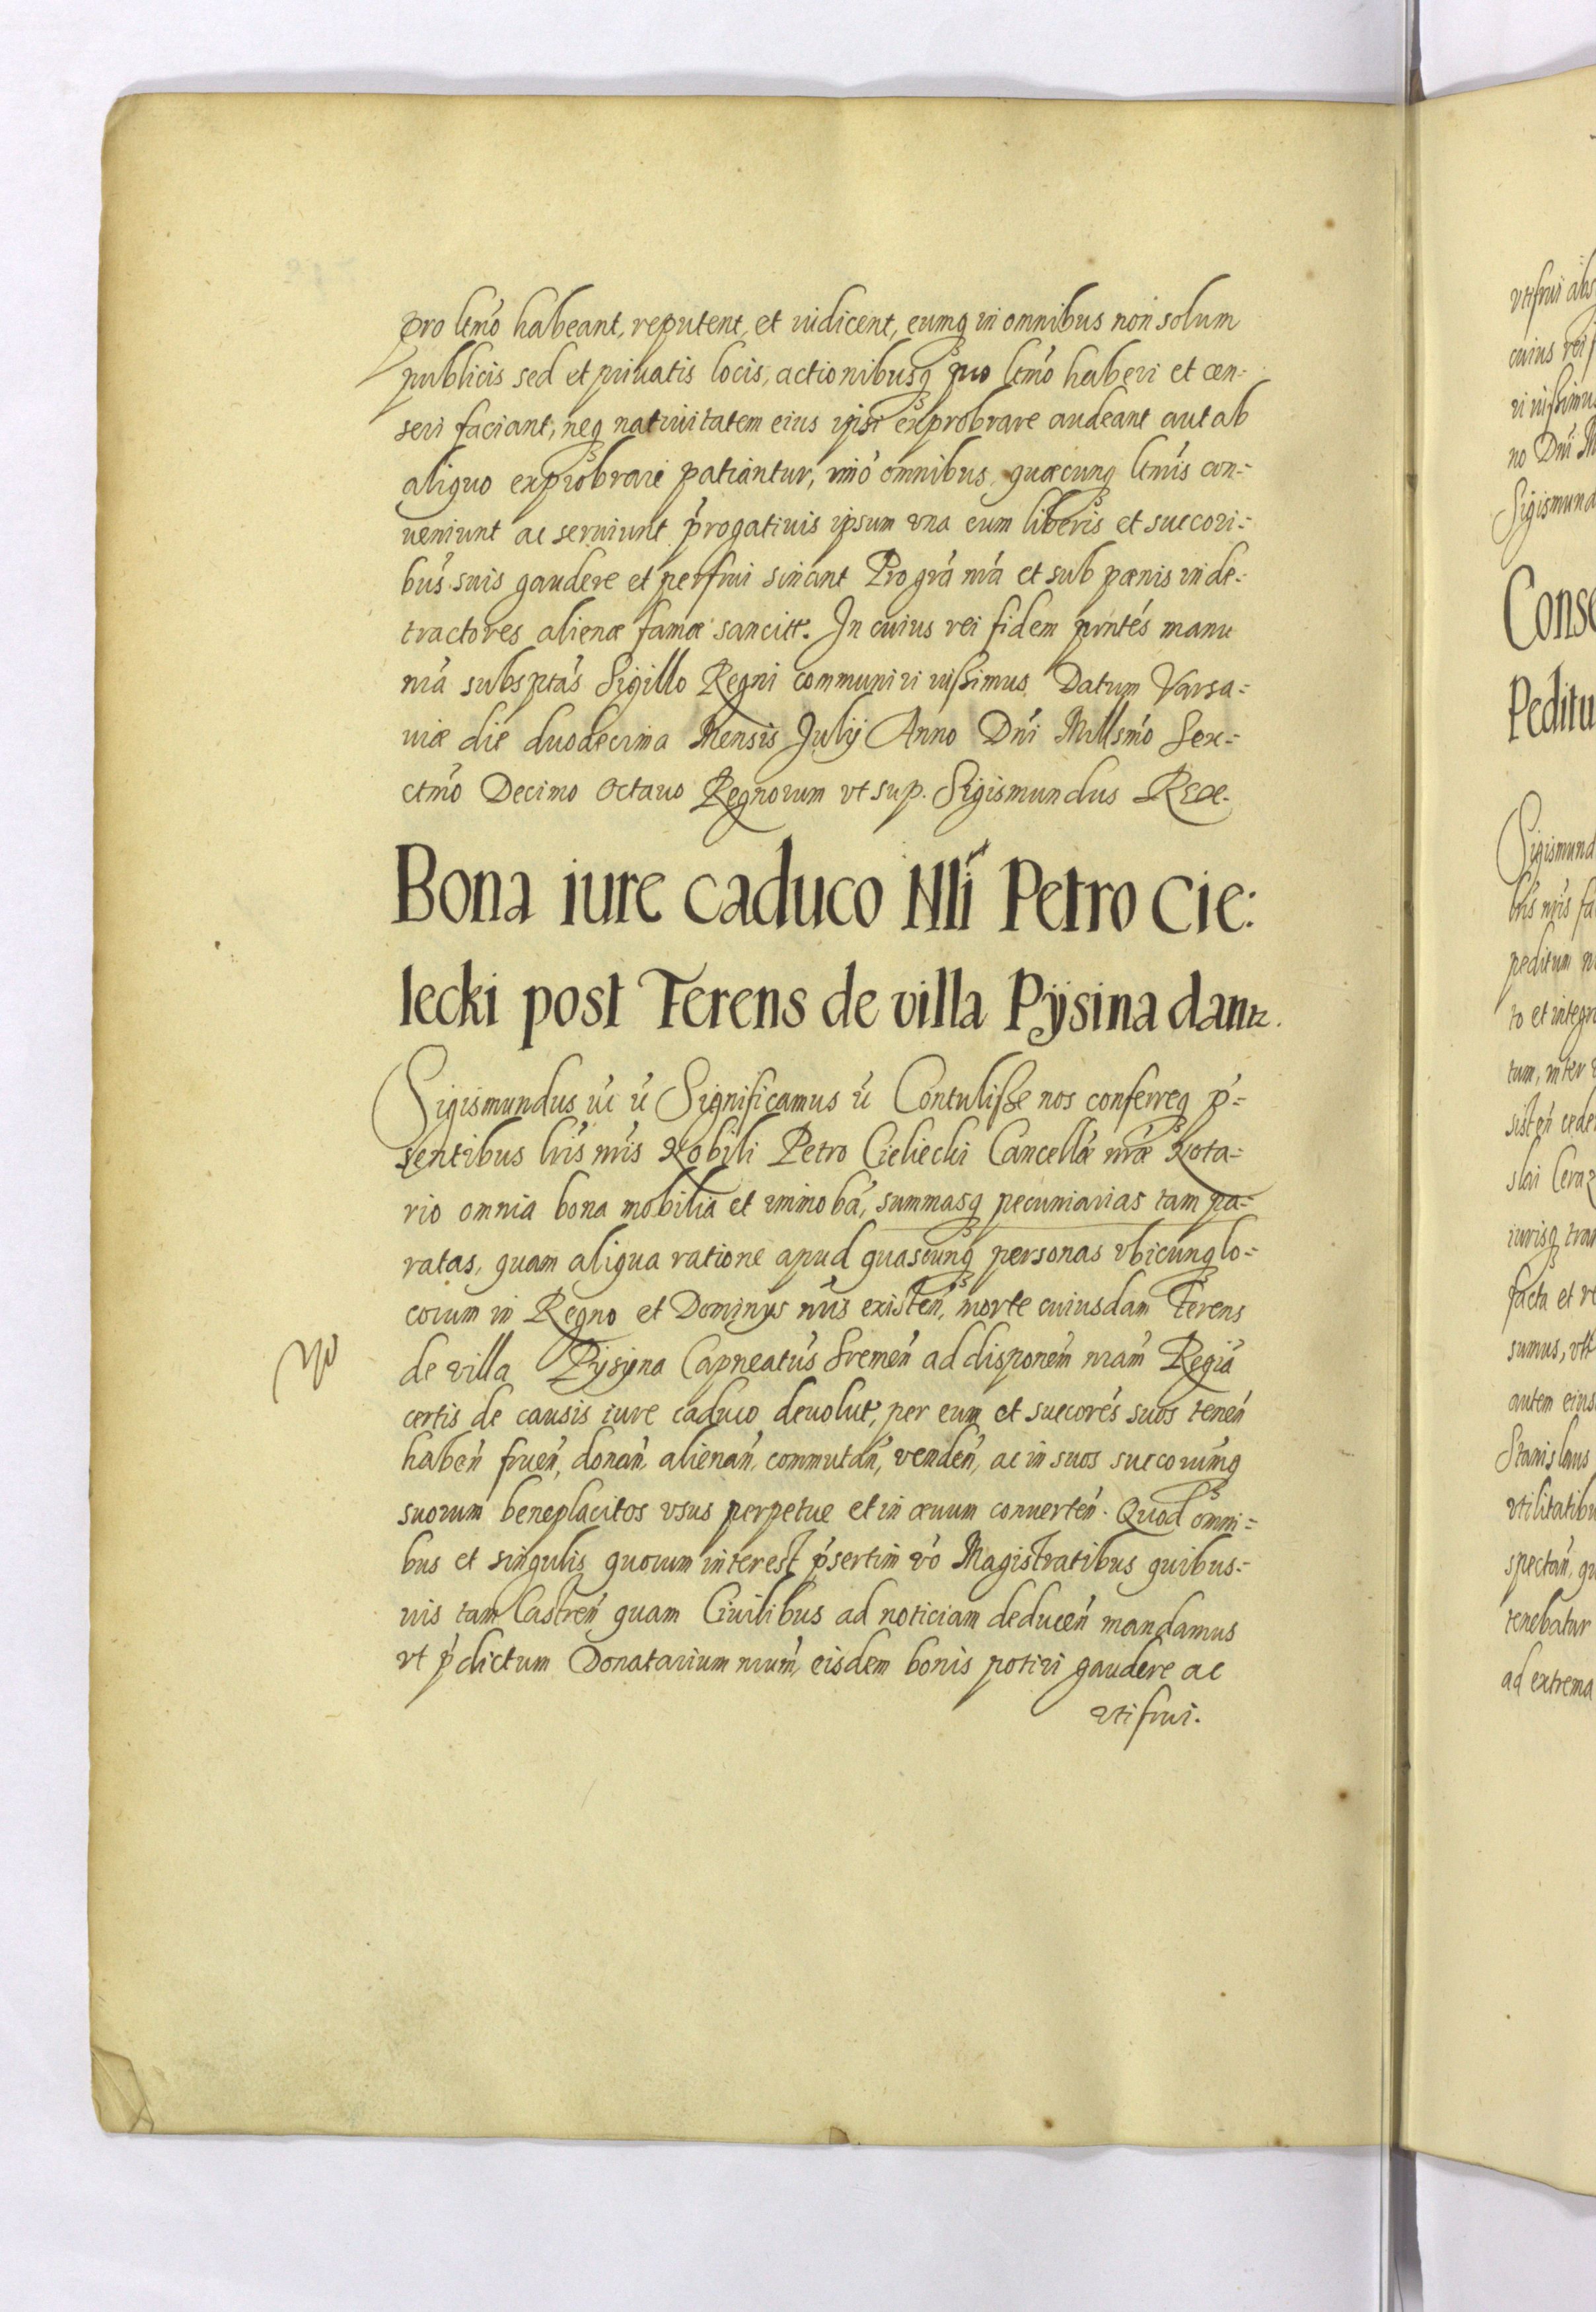 pro ltmó habeant, reputent, et iudicent, eumq in omnibus non solum
publicis sed et priuatis locis, actionibusq pro ltmó haberi et cen=
seri faciant, neq natiuitatem eius ipsi exprobrare audeant aut ab
aliquo exprobrari patiantur, imó omnibus, quæcunq ltmis con=
ueniunt ac seruiunt progatiuis ipsum vna cum liberis et succori=
bús suis gaudere et perfrui sinant Pro grá nrá et sub pœnis in de=
tractores alienæ famæ sancitt. In cuius rei fidem prntés manu
nrá subsptás Sigillo Regni communiri iussimus Datum Varsa=
uiæ die duodecima Mensis Julij Anno Dni Millsmó Sex=
ctmó Decimo Octauo Regnorum vt sup. Sigismundus Rex.
Bona iure caduco Nli Petro Cie:
lecki post Terens de villa Pÿsina dant.
Sigismundus Significamus Contulisse nos conferreq p=
sentibus lris nris Nobili Petro Cieliecki Cancellæ nræ Nota=
rio omnia bona mobilia et immobá, summasq pecuniarias tam pa=
ratas, quam aliqua ratione apud quascunq personas vbicunq lo=
corum in Regno et Dominijs nris existeń, morte cuiusdam Terens
de villa Pijsijna Capneatús Sremeń ad disponem nram Regiá
certis de causis iure caduco deuolut, per eum et succorés suos teneń
habeń frueń, donań alienań, commutań, vendeń, ac in suos succorumq
suorum beneplacitos vsus perpetue et in æuum conuerteń. Quod omni=
bus et singulis quorum interest psertim vó Magistratibus quibus=
uis tam Castreń quam Ciuilibus ad noticiam deduceń mandamus
vt pdictum Donatarium nrum, eisdem bonis potiri gaudere ac
vtifrui.
vtifrui abs
cuius rei f
ri iussimus
no Dni M
Sigismund
Conse
Peditu
Sigismund
bris nris fa
peditum n
to et integr
tum, inter
sisteń cede
slai Ceraz
iurisq tran
facta et re
sumus, vtt
autem eius
Stanislaus
vtilitatibu
spectań, qu
tenebatur
ad extrema